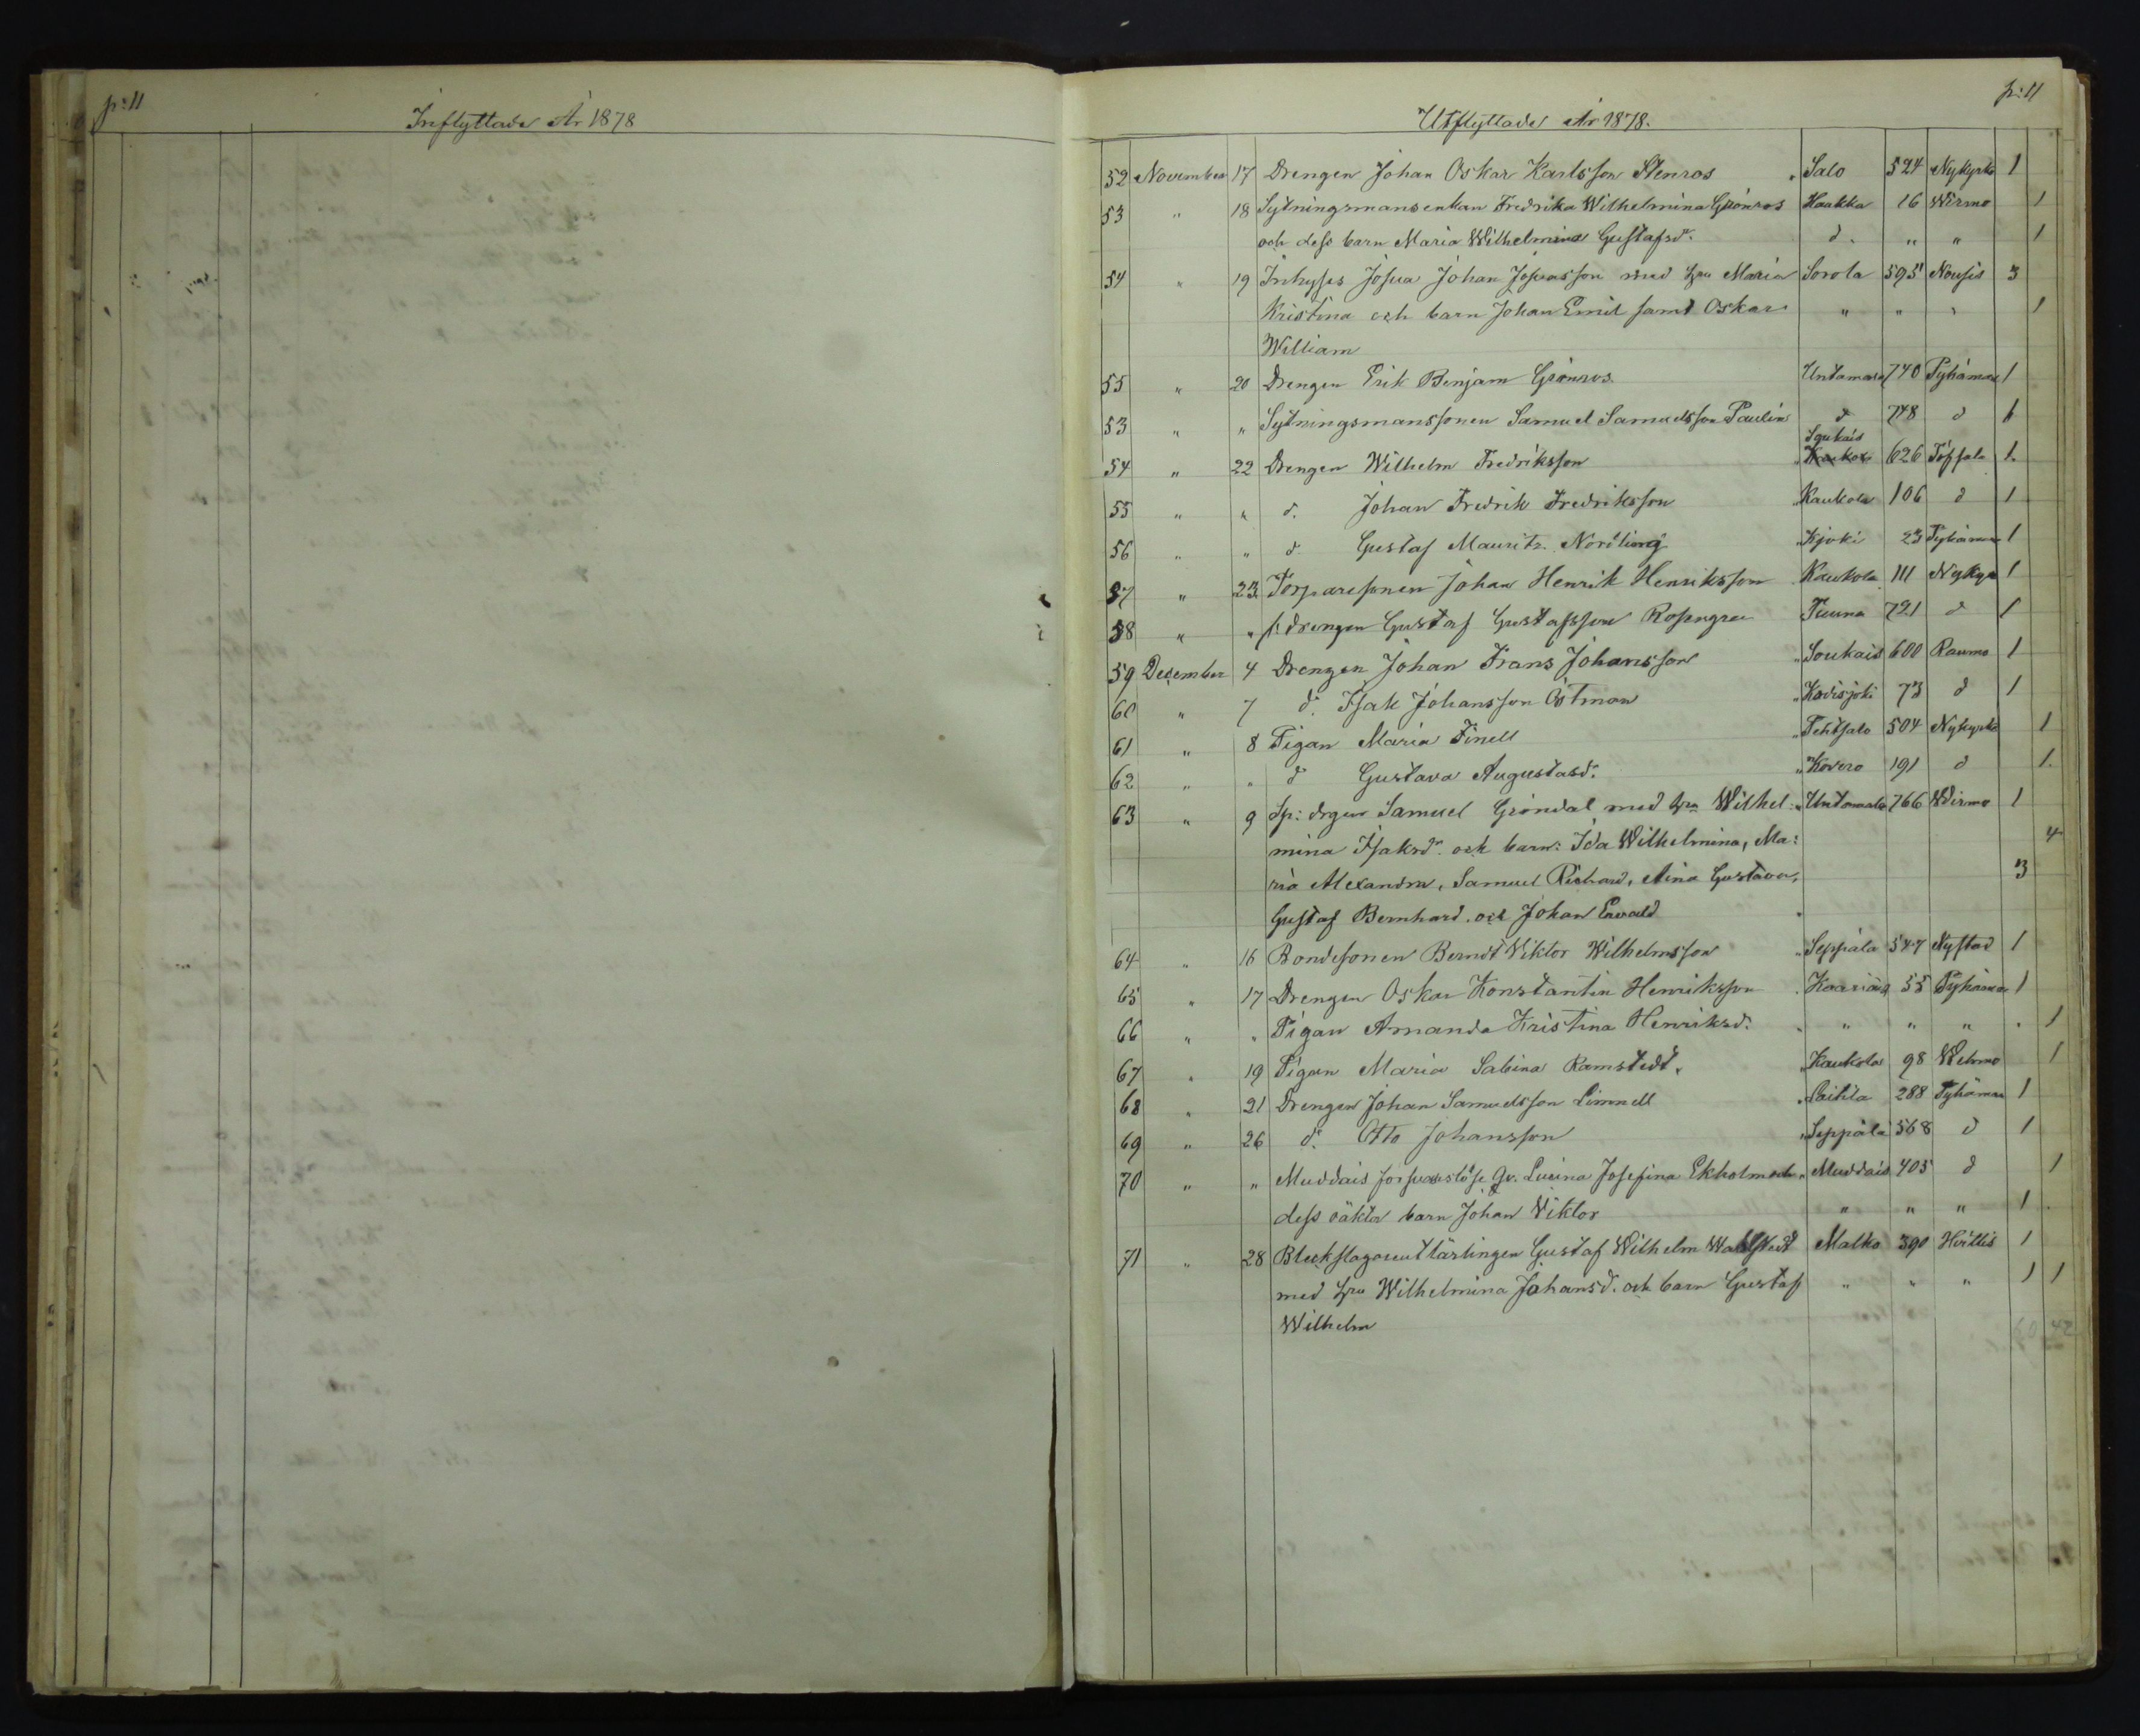 p: 11
Inflyttade År 1878
p: 11
Utflyttade År 1878.
52 November 17 Drengen Johan Oskar Karlsson Stenros " Salo 524 Nykyrko 1
53 " 18 Sytningsmansenkan Fredrika Wilhelmina Grönros Haukka 16 Wirmo 1
och dess barn Maria Wilhelmina Gustafsdr. d. " " 1
54 " 19 Inhyses Josua Johan Josuasson med hu Maria Sorola 595 Nousis 3
Kristina och barn Johan Emil samt Oskar " " " 1
William
55 " 20 Drengen Erik Benjam Grönros Untamala 740 Pyhämaa 1
53 " " Sytningsmanssonen Samuel Samuelsson Paulin d 748 d 1
Soukais
54 " 22 Drengen Wilhelm Fredriksson " 626 Töfsala 1.
55 " " d. Johan Fredrik Fredriksson " Kaukola 106 d 1
56 " " d Gustaf Mauritz Nordling " Kjoki 23 Pyhämaa 1
57 " 23 Torparesonen Johan Henrik Henriksson Kaukola 111 Nykyr 1
58 " " f. drengen Gustaf Gustafsson Rosengren Tuuna 721 d 1
59 December 4 Drengen Johan Frans Johansson " Soukais 600 Raumo 1
60 " 7 d. Isak Johansson Östman " Kodisjoki 73 d 1
61 " 8 Pigan Maria Finell " Pehtsalo 504 Nykyrko 1
62 " " d Gustava Augustasd. " Kovero 191 d 1.
63 " 9 Sp: drgen Samuel Gröndal med hu Wilhel: " Untamala 766 Wirmo 1
mina Isaksdr. och barn: Ida Wilhelmina, Ma: 4
ria Alexandra, Samuel Richard, Aina Gustava, 3
Gustaf Bernhard och Johan Ewald
64 " 16 Bondesonen Berndt Viktor Wilhelmsson " Seppälä 547 Nystad 1
65 " 17 Drengen Oskar Konstantin Henriksson 55 Pyhämaa 1
66 " " Pigan Amanda Kristina Henriksd. " " " " 1
67 " 19 Pigan Maria Sabina Ramstedt. " Kaukola 98 Wehmo 1
68 " 21 Drengen Johan Samuelsson Limnell " Laitila 288 Pyhämaa 1
69 " 26 d. Otto Johansson " Seppälä 568 d 1
70 " " Muddais försvarslöse qv. Lucina Josefina Ekholm och " Muddais 405 d 1
dess oäkta barn Johan Viktor " " " 1
71 " 28 Bleckslagareutlärlingen Gustaf Wilhelm Wahlstedt Malko 390 Hvittis 1
med hu Wilhelmina Johansd. och barn Gustaf " " " 1 1
Wilhelm
60 42